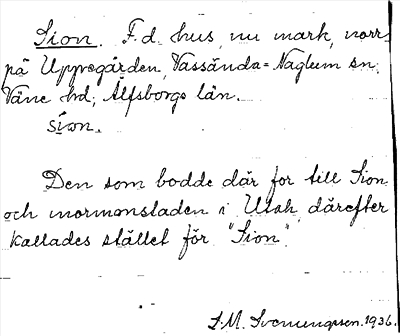 Sion. F.d. hus, nu mark, norr
på Uppregården, Vassända=Naglum sn,
Väne hd; Älfsborgs län.
sion.
Den som bodde där for till Sion
och mormonstaden i Utah, därefter
kallades stället för "Sion".
S.M. Svenungsson. 1936.